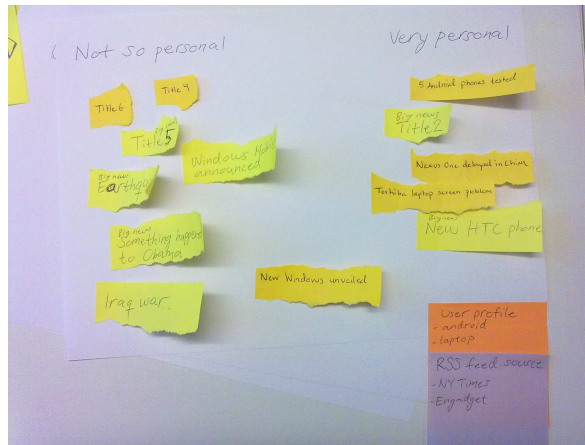 Not so personal
Very personal
Title 4
Title 6
Title 5
Windows
announced
Big news
Big news
Something happens
to Obama
Iraq war.
New Windows unveiled
5 Android phones tested
Big news
Title 2
Nexus One delayed in China
Toshiba laptop screen problem
Big news
New HTC phone
User profile
- android
- laptop
RSS feed source
- NY Times
- Engadget